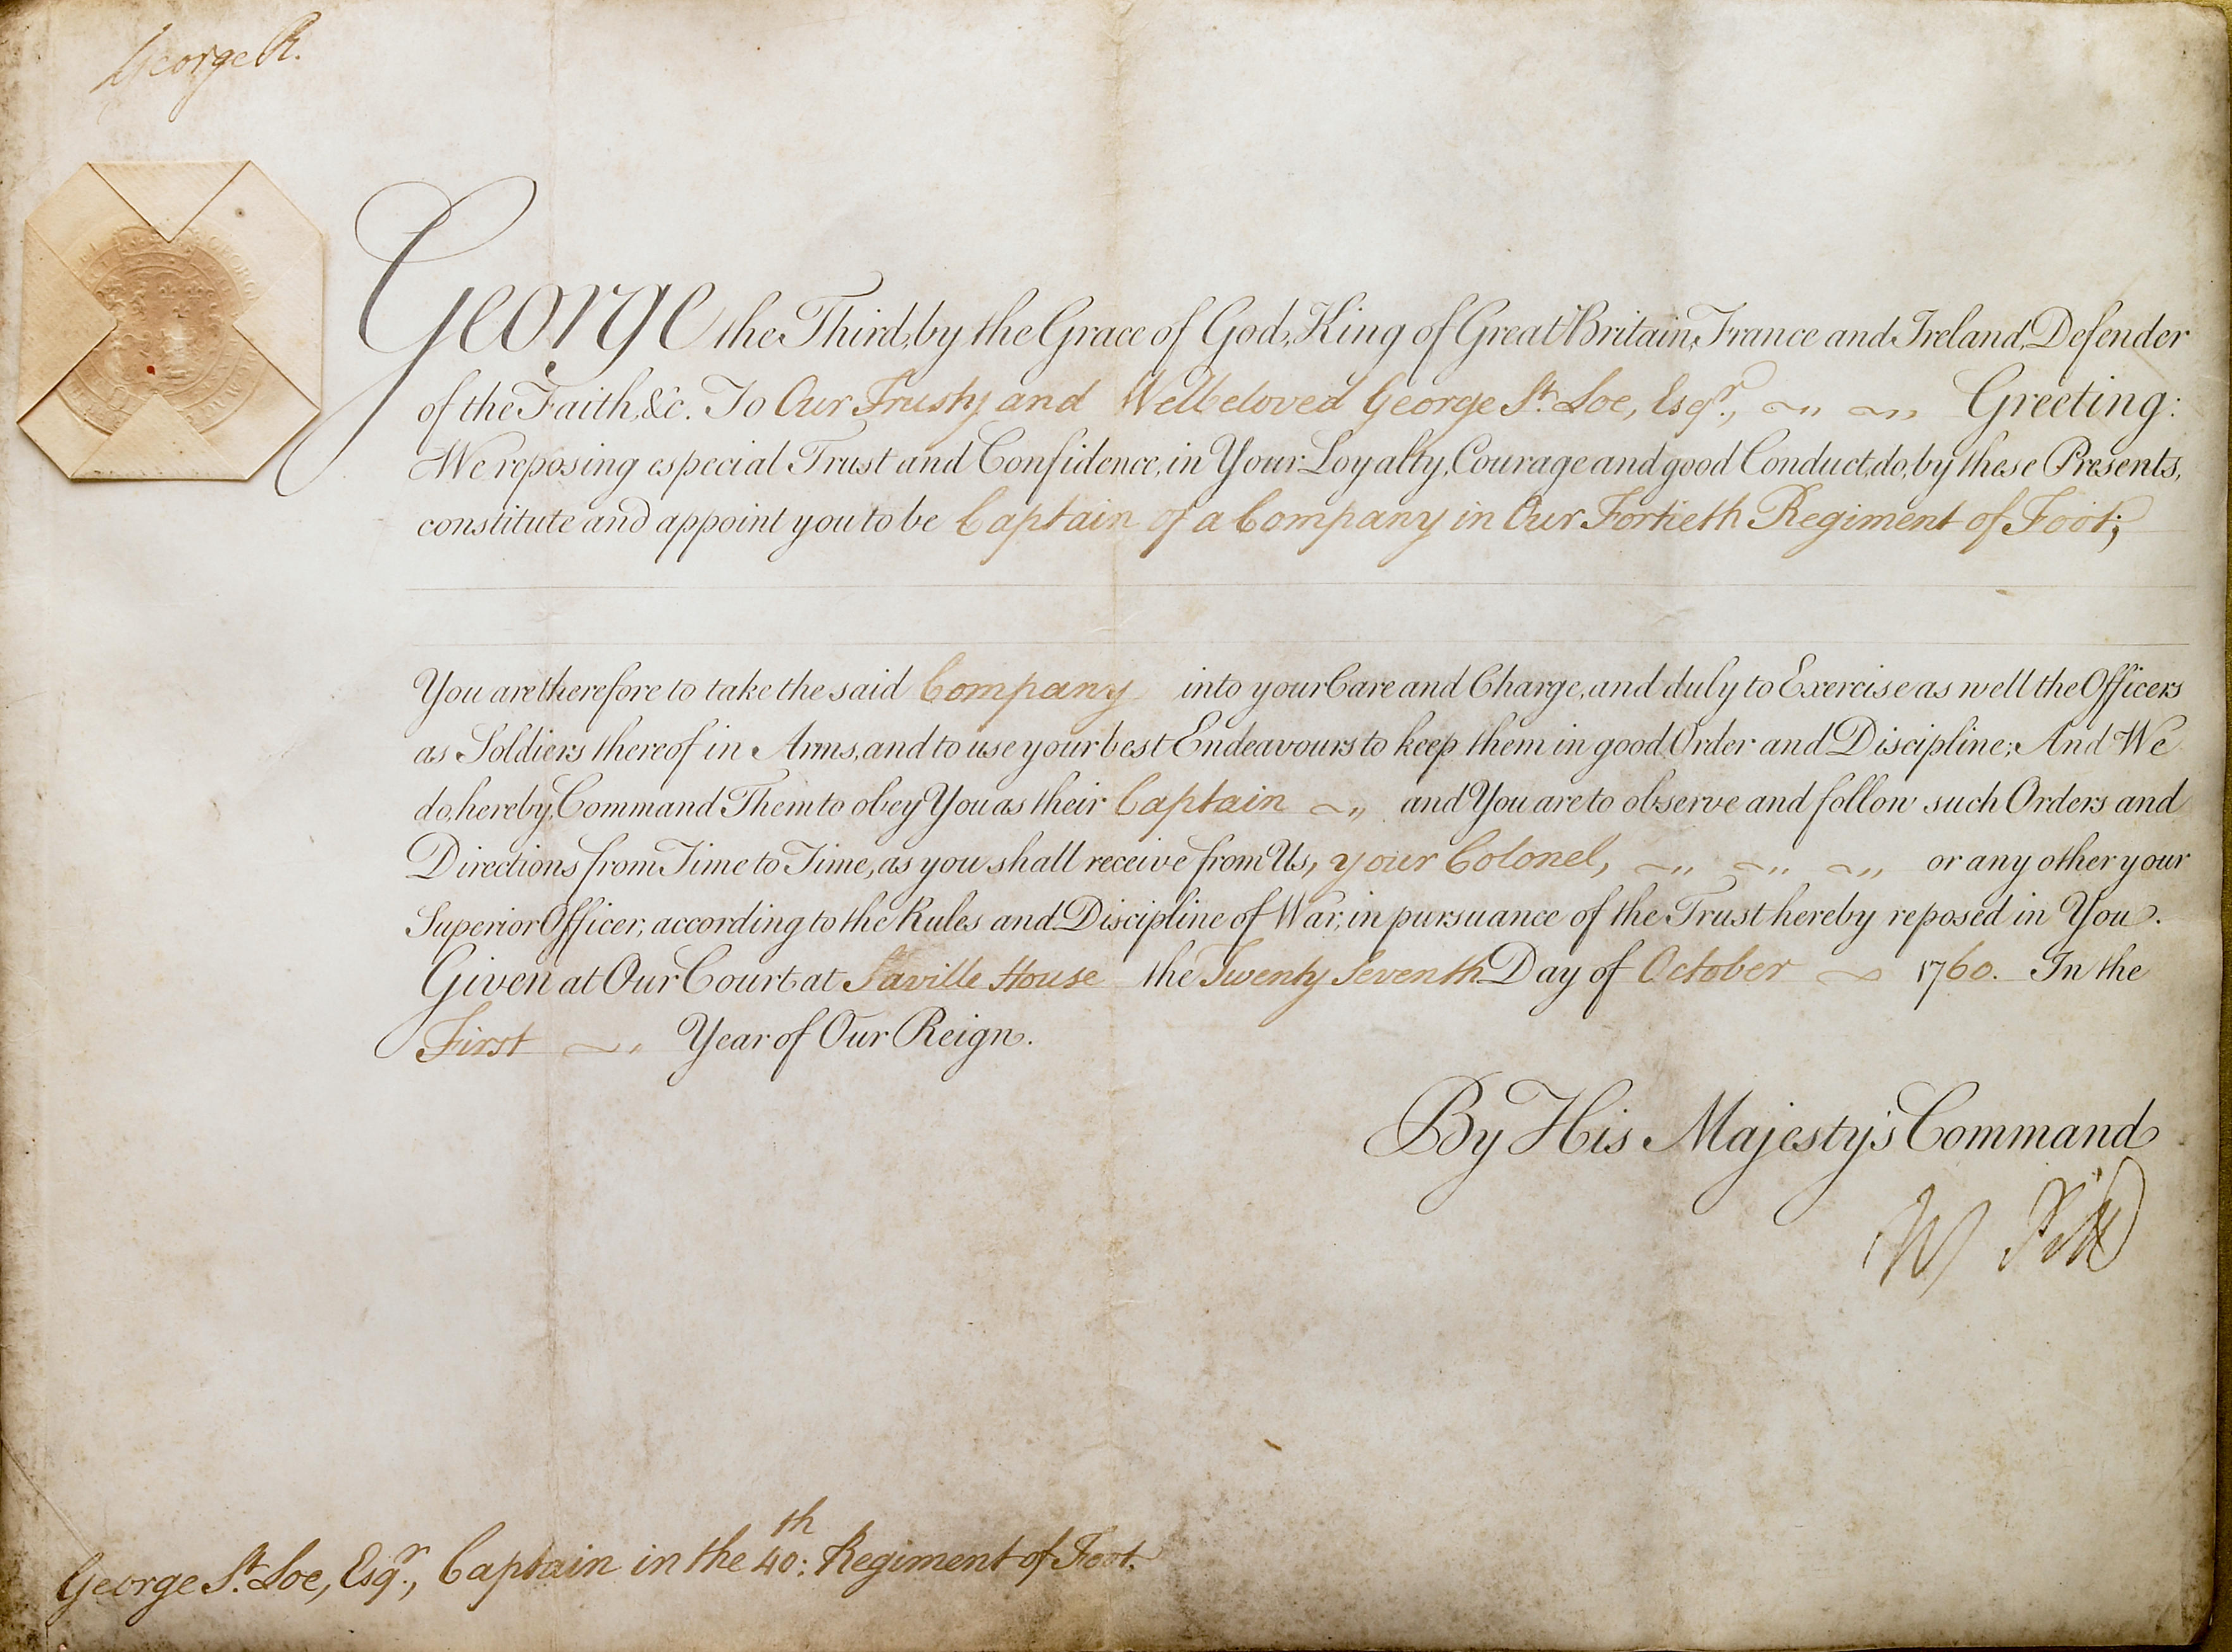 George R.
George the Third, by the Grace of God, King of Great Britain, France and Ireland, Defender
of the Faith, &c. To Our Trusty and Wellbeloved George St. Loe, Esqr., Greeting:
We reposing especial Trust and Confidence, in Your Loyalty, Courage and good Conduct, do, by these Presents,
constitute and appoint you to be Captain of a Company in Our Fortieth Regiment of Foot;
You are therefore to take the said Company into your Care and Charge, and duly to Exercise as well the Officers
as Soldiers thereof in Arms, and to use your best Endeavours to keep them in good Order and Discipline; And We
do, hereby, Command Them to obey You as their Captain and You are to observe and follow such Orders and
Directions from Time to Time, as you shall receive from Us, your Colonel, or any other your
Superior Officer, according to the Rules and Discipline of War, in pursuance of the Trust hereby reposed in You.
Given at Our Court at Saville House the Twenty Seventh Day of October 1760. In the
First Year of Our Reign.
By His Majesty's Command
W Pitt
George St. Loe, Esqr., Captain in the 40:th Regiment of Foot.